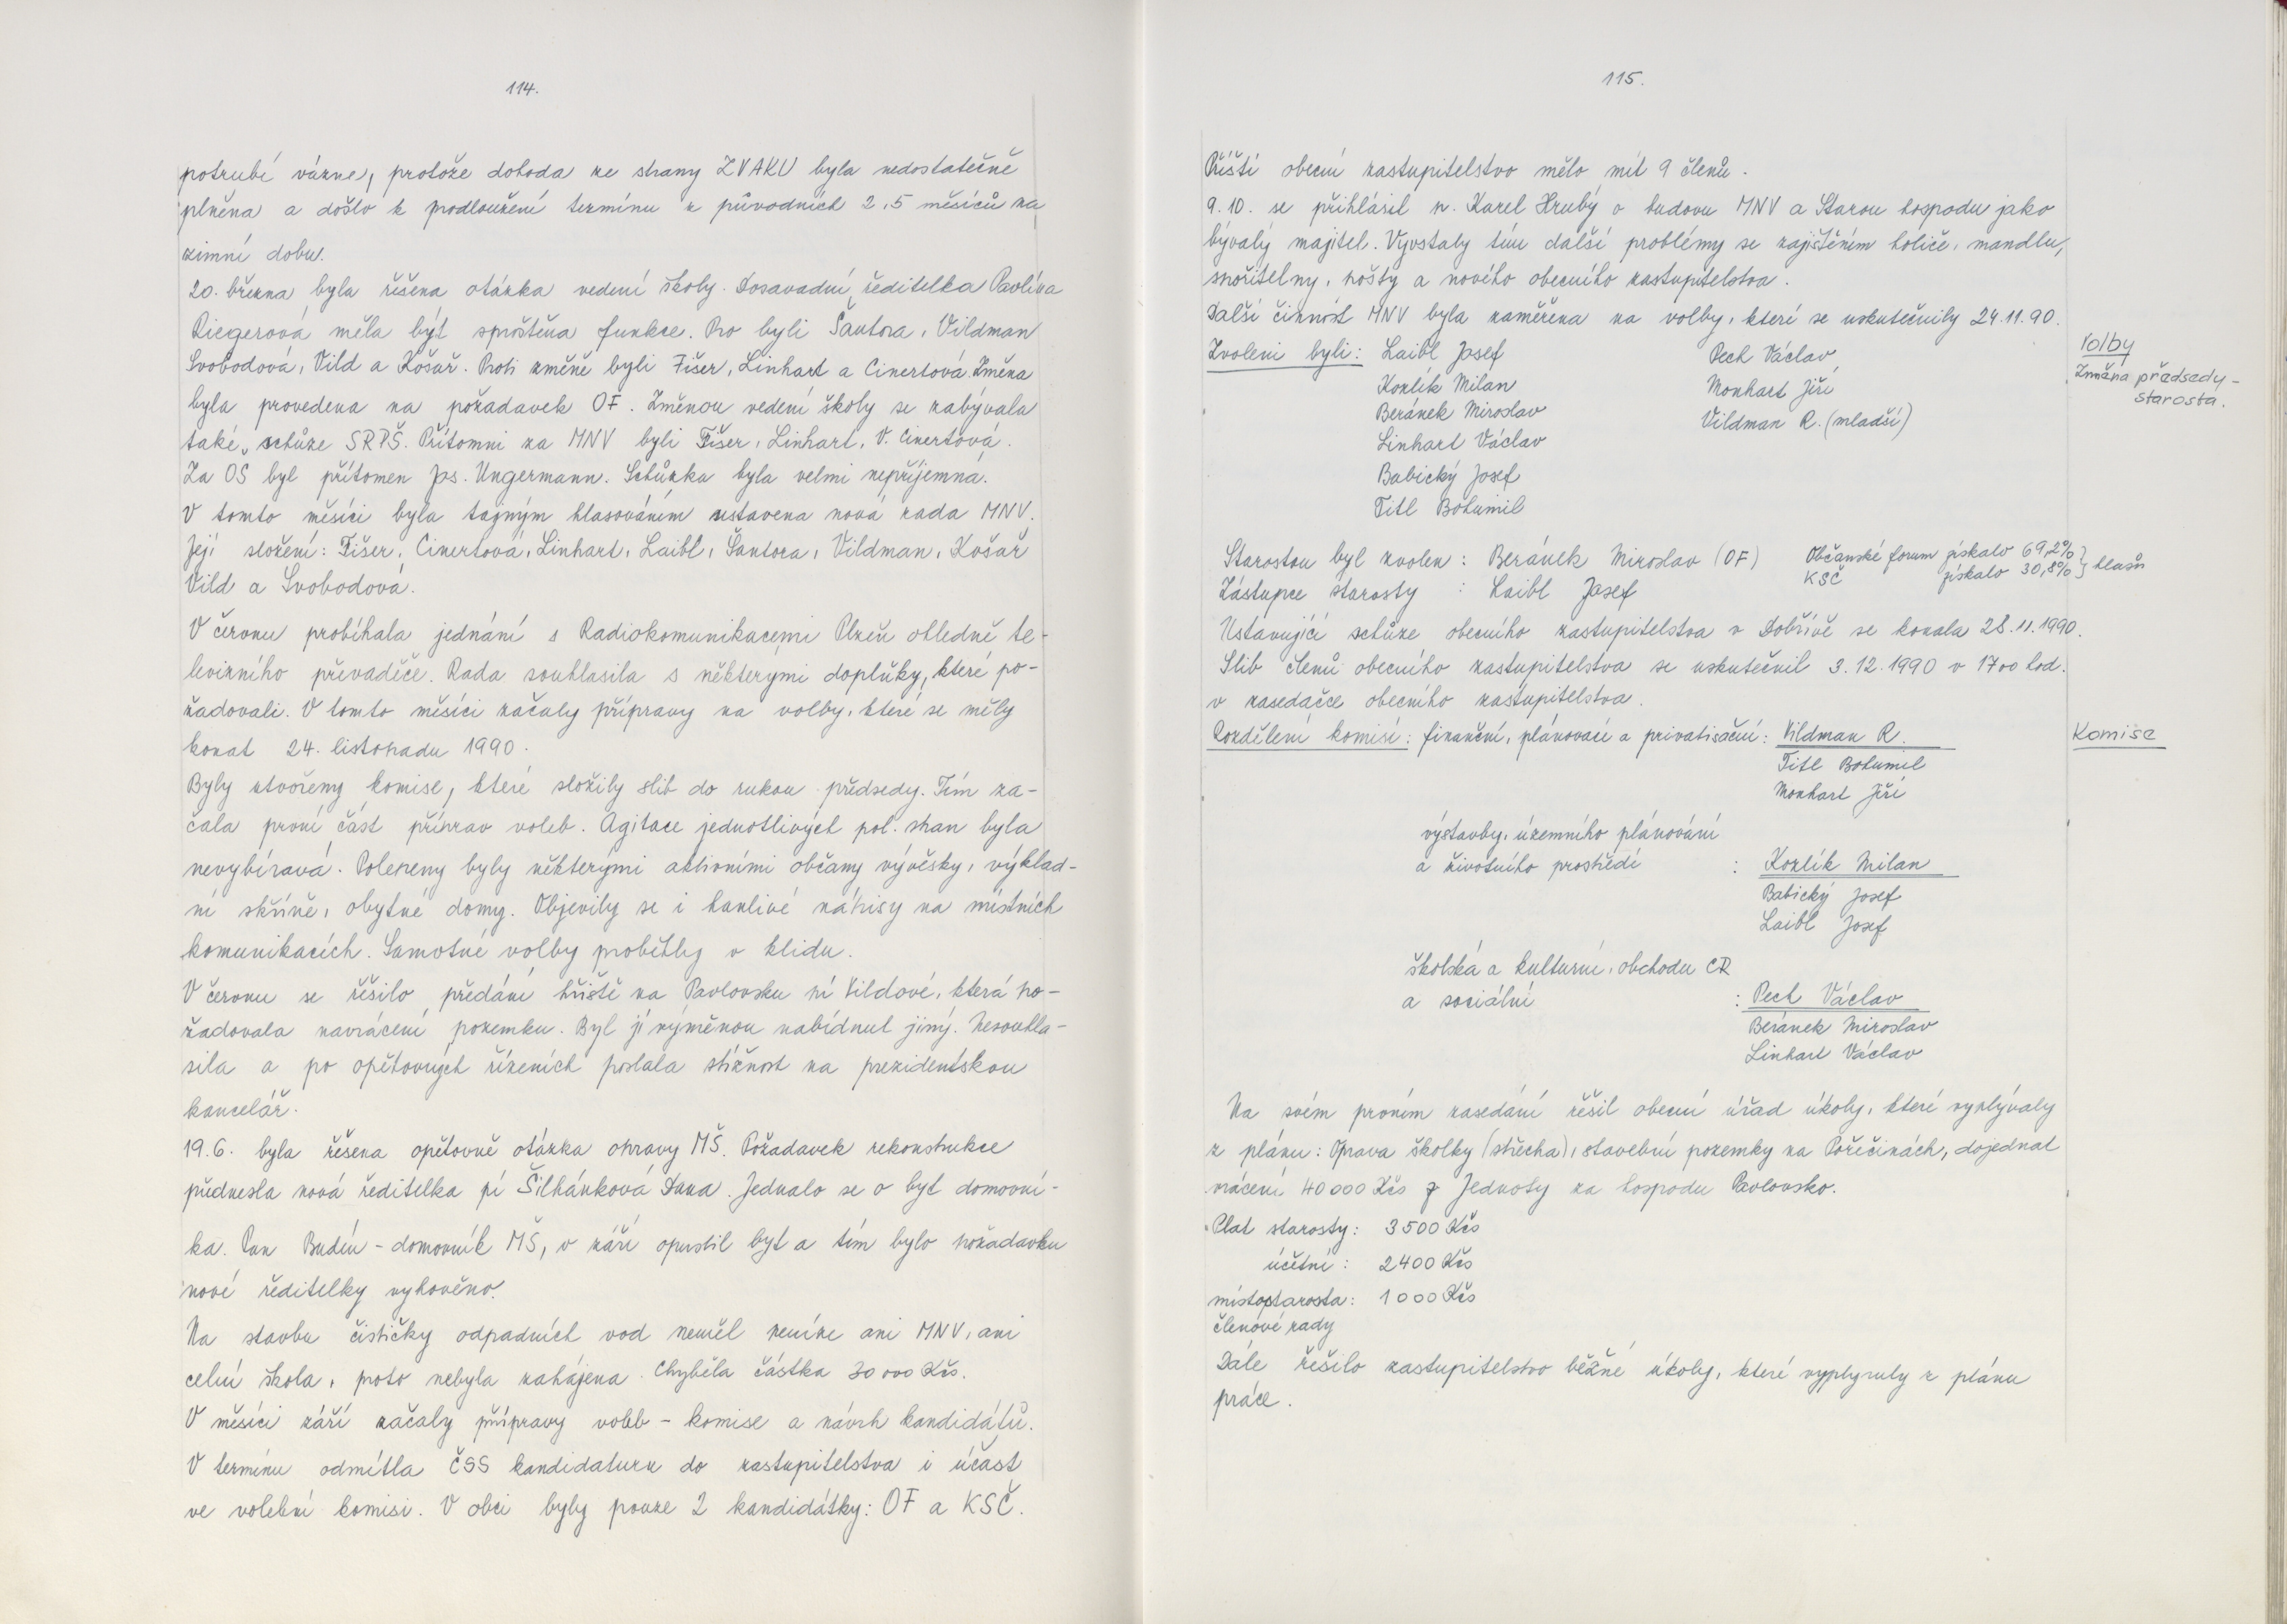 114.
potrubí vázne, protože dohoda ze strany ZVAKU byla nedostatečně
plněna a došlo k prodloužení termínu z původních 2,5 měsíců na
zimní dobu.
20. března byla řešena otázka vedení školy. Dosavadní ředitelka Pavlína
Riegerová měla být sproštěna funkce. Pro byli Šantora, Vildman
Svobodová, Vild a Košař. Proti změně byli Fišer, Linhart a Cinertová. Změna
byla provedena na požadavek OF. Změnou vedení školy se zabývala
také schůze SRPŠ. Přítomni za MNV byli Fišer, Linhart, V. Cinertová.
Za OŠ byl přítomen Jos. Ungermann. Schůzka byla velmi nepříjemná.
V tomto měsíci byla tajným hlasováním ustavena nová rada MNV.
Její složení: Fišer, Cinertová, Linhart, Laibl, Šantora, Vildman, Košař
Vild a Svobodová.
V červnu probíhala jednání s Radiokomunikacemi Plzeň ohledně te-
levizního převaděče. Rada souhlasila s některými doplňky, které po-
žadovali. V tomto měsíci začaly přípravy na volby, které se měly
konat 24. listopadu 1990.
Byly utvořeny komise, které složily slib do rukou předsedy. Tím za-
čala první část příprav voleb. Agitace jednotlivých pol. stran byla
nevybíravá. Polepeny byly některými aktivními občany vývěsky, výklad-
ní skříně, obytné domy. Objevily se i hanlivé nápisy na místních
komunikacích. Samotné volby proběhly v klidu.
V červnu se řešilo předání hřiště na Pavlovsku pí Vildové, která po-
žadovala navrácení pozemku. Byl jí výměnou nabídnut jiný. Nesouhla-
sila a po opětovných řízeních poslala stížnost na prezidentskou
kancelář.
19.6. byla řešena opětovně otázka opravy MŠ. Požadavek rekonstrukce
přednesla nová ředitelka pí Šilhánková Dana. Jednalo se o byt domovní-
ka. Pan Budín - domovník MŠ, v září opustil byt a tím bylo požadavku
nové ředitelky vyhověno.
Na stavbu čističky odpadních vod neměl peníze ani MNV, ani
celní škola, proto nebyla zahájena. Chyběla částka 30 000 Kčs.
V měsíci září začaly přípravy voleb - komise a návrh kandidátů.
V termínu odmítla ČSS kandidaturu do zastupitelstva i účast
ve volební komisi. V obci byly pouze 2 kandidátky: OF a KSČ.
115.
Příští obecní zastupitelstvo mělo mít 9 členů.
9.10. se přihlásil p. Karel Hrubý o budovu MNV a Starou hospodu jako
bývalý majitel. Vyvstaly tím další problémy se zajištěním holiče, mandlu,
spořitelny, pošty a nového obecního zastupitelstva.
Další činnost MNV byla zaměřena na volby, které se uskutečnily 24.11.90.
Volby
Změna předsedy -
starosta.
Zvoleni byli: Laibl Josef Pech Václav
Kozlík Milan Monhart Jiří
Beránek Miroslav Vildman R. (mladší)
Linhart Václav
Babický Josef
Titl Bohumil
Starostou byl zvolen: Beránek Miroslav (OF) Občanské forum získalo 69,2% } hlasů
Zástupce starosty : Laibl Josef KSČ získalo 30,8%
Ustavující schůze obecního zastupitelstva v Dobřívě se konala 28.11.1990.
Slib členů obecního zastupitelstva se uskutečnil 3.12.1990 v 17 00 hod.
v zasedačce obecního zastupitelstva.
Rozdělení komisí: finanční, plánovací a privatisační: Vildman R. Komise
Titl Bohumil
Monhart Jiří
výstavby, územního plánování
a životního prostředí : Kozlík Milan
Babický Josef
Laibl Josef
školská a kulturní, obchodu CR
a sociální : Pech Václav
Beránek Miroslav
Linhart Václav
Na svém prvním zasedání řešil obecní úřad úkoly, které vyplývaly
z plánu: Oprava školky (střecha), stavební pozemky na Pořečinách, dojednat
vrácení 40000 Kčs z Jednoty za hospodu Pavlovsko.
Plat starosty: 3500 Kčs
účetní: 2400 Kčs
místostarosta: 1000 Kčs
členové rady
Dále řešilo zastupitelstvo běžné úkoly, které vyplynuly z plánu
práce.